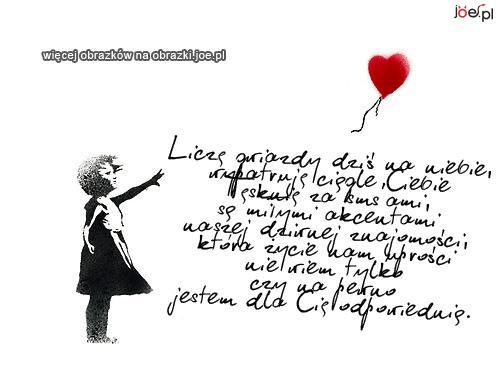 joe.pl
więcej obrazków na obrazki.joe.pl
Liczę gwiazdy dziś na niebie,
wypatruję ciągle Ciebie
tęsknię za smsami,
są miłymi akcentami
naszej dziwnej znajomości,
która życie nam uprości
nie wiem tylko
czy na pewno
jestem dla Cię odpowiednią.